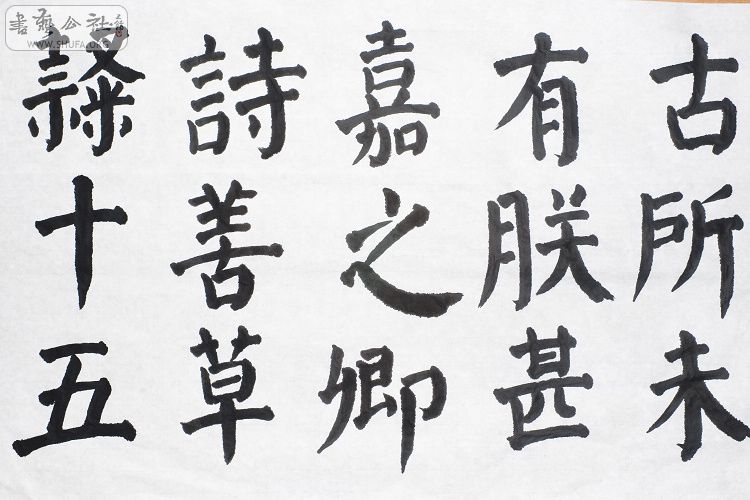 古所未
有朕甚
嘉之卿
詩善草
隸十五
書藝公社
WWW.SHUFA.ORG